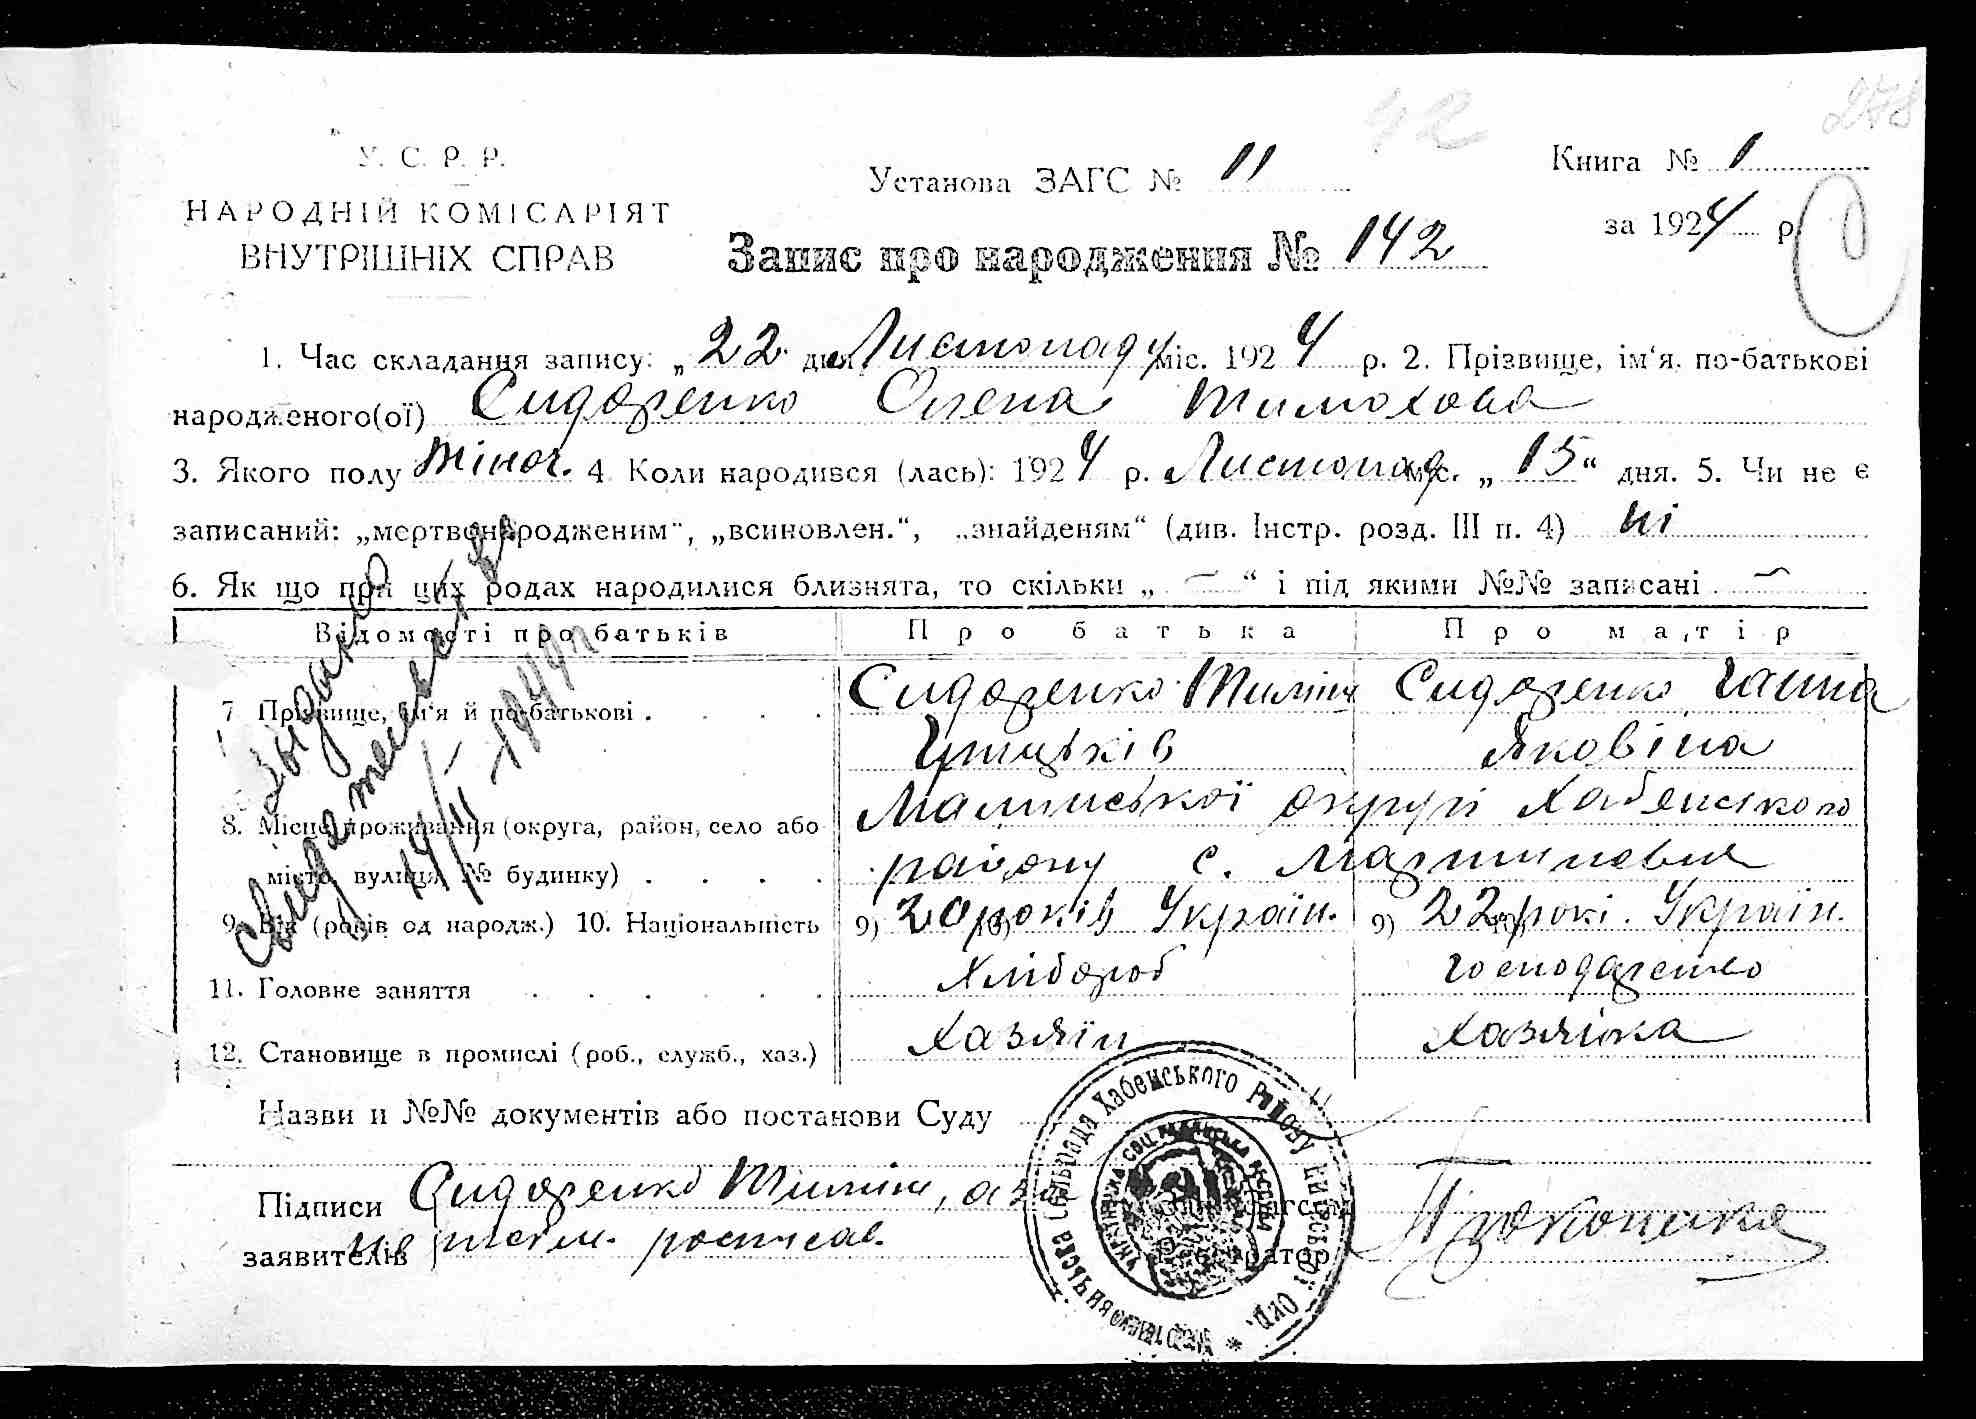 42
278
У. С. Р. Р.
НАРОДНІЙ КОМІСАРІЯТ
ВНУТРІШНІХ СПРАВ
Установа ЗАГС № 11
Книга № 1
за 1924 р.
Запис про народження № 142
1. Час складання запису: „22" дня Листопаду міс. 1924 р. 2. Прізвище, ім'я, по-батькові
народженого(ої) Сидоренко Олена Тимохова
3. Якого полу жіноч. 4 Коли народився (лась): 1924 р. Листопад міс. „15" дня. 5. Чи не є
записаний: „мертвонародженим", „всиновлен.", „знайденям" (див. Інстр. розд. III п. 4) ні
6. Як що при цих родах народилися близнята, то скільки „ — " і під якими №№ записані —
Відомості про батьків Про батька Про матір
7 Прізвище, ім'я й по-батькові . . . . Сидоренко Тиміш Сидоренко Ганна
Яковіна
8. Місце проживання (округа, район, село або Малинської округи Хабенського
місто, вулиця № будинку) . . . . району с. Мартиновка
9. Вік (років од народж.) 10. Національність 9) 20 років 10) Україн. 9) 22 рокі. 10) Україн.
11. Головне заняття . . . . . . Хлібороб господарство
12. Становище в промислі (роб., служб., хаз.) Хазяїн Хазяйка
Назви и №№ документів або постанови Суду
Підписи Сидоренко Тиміш, а за
заявителів росписав.
Реєстратор
Выдано
свидетельство
14/II-1949г
Сельрада Хабенського Району Київської Окр.